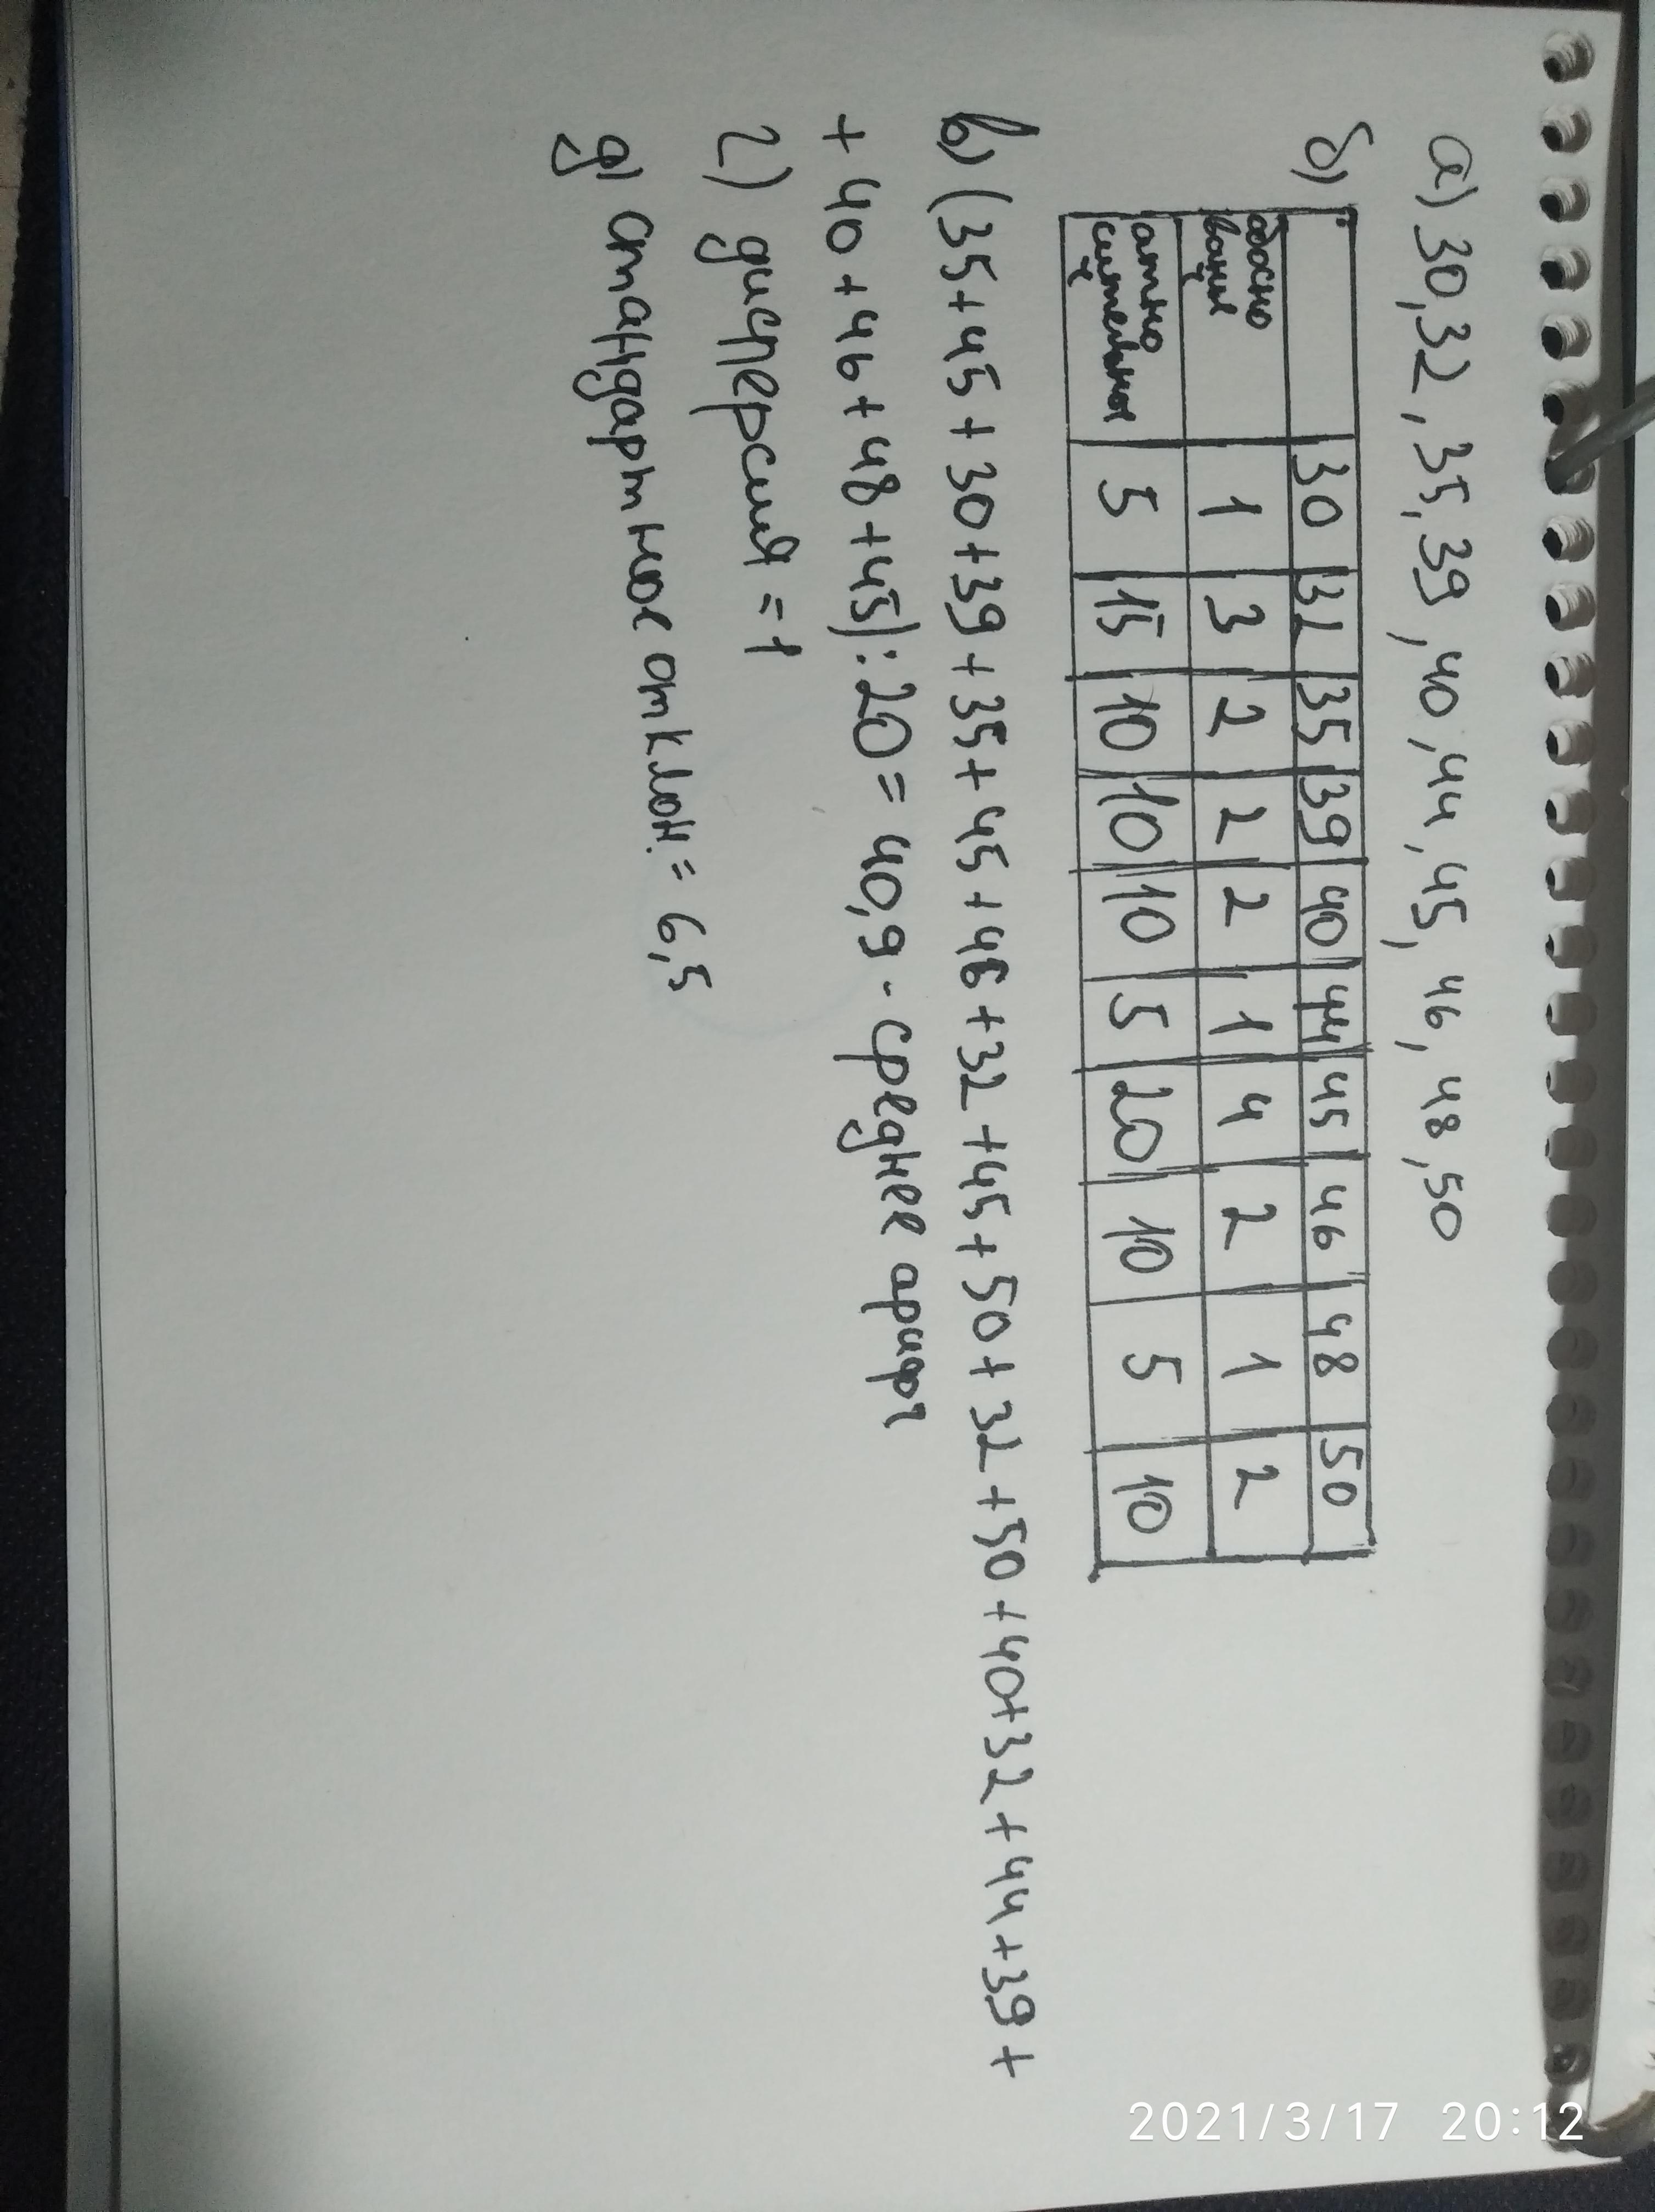 а) 30, 32, 35, 39, 40, 44, 45, 46, 48, 50
б)
30 32 35 39 40 44 45 46 48 50
1 3 2 2 2 1 4 2 1 2
5 15 10 10 10 5 20 10 5 10
в) (35+45+30+39+35+45+46+32+45+50+32+50+40+32+44+39+
+40+46+48+45):20=40,9 - среднее арифг
г) дисперсия = 1
д) стандартное отклон. = 6,5
2021/3/17 20:12